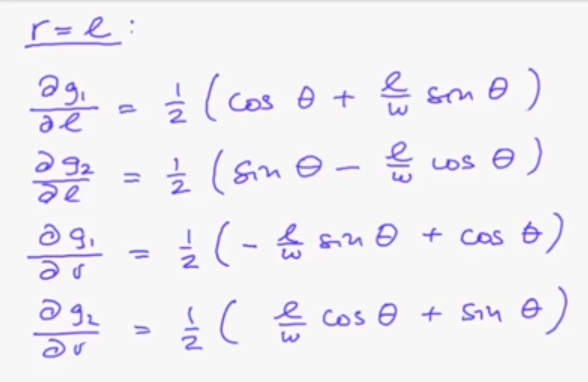 r = l :
∂g₁/∂l = 1/2 ( cos θ + l/w sin θ )
∂g₂/∂l = 1/2 ( sin θ − l/w cos θ )
∂g₁/∂r = 1/2 ( − l/w sin θ + cos θ )
∂g₂/∂r = 1/2 ( l/w cos θ + sin θ )